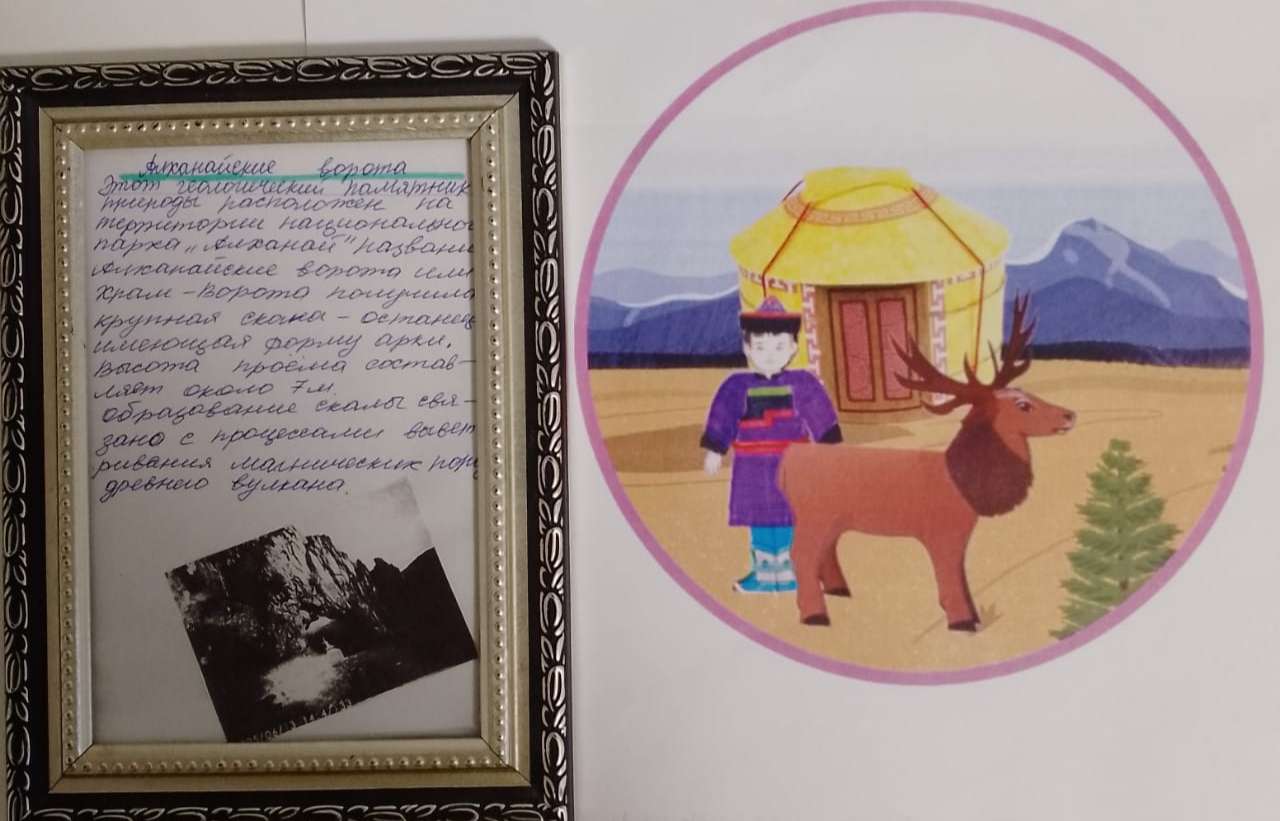 Алханайские ворота
Этот геологический памятник
природы расположен на
территории национальног
парка „Алханай" Названи
Алханайские ворота или
Храм-Ворота получила
крупная скала - останец
имеющая форму арки.
Высота проёма состав-
ляет около 7 м.
образование скалы свя-
зано с процессами вывет
ривания магнических пор
древнего вулкана.